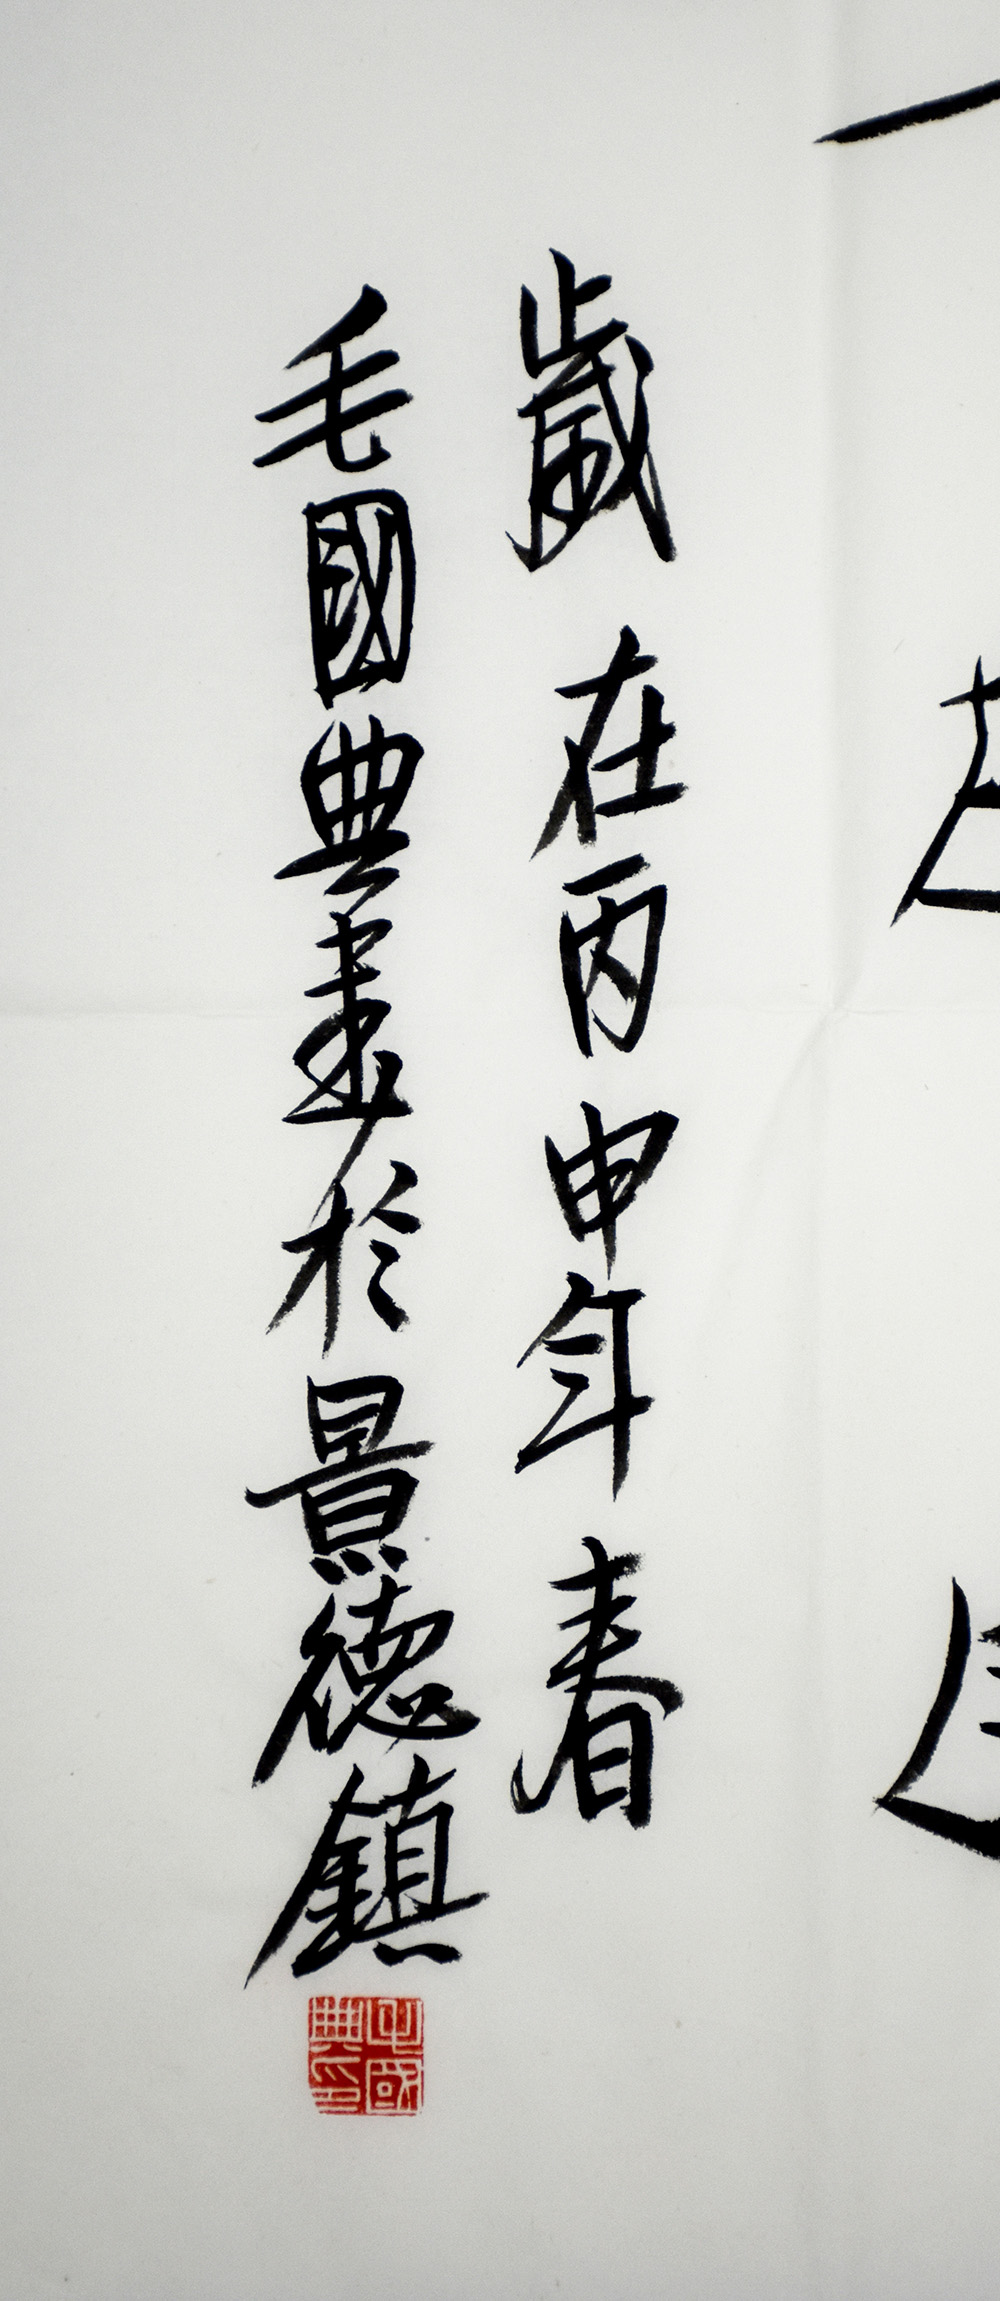 歲在丙申年春
毛國典書於景德鎮
毛國典印